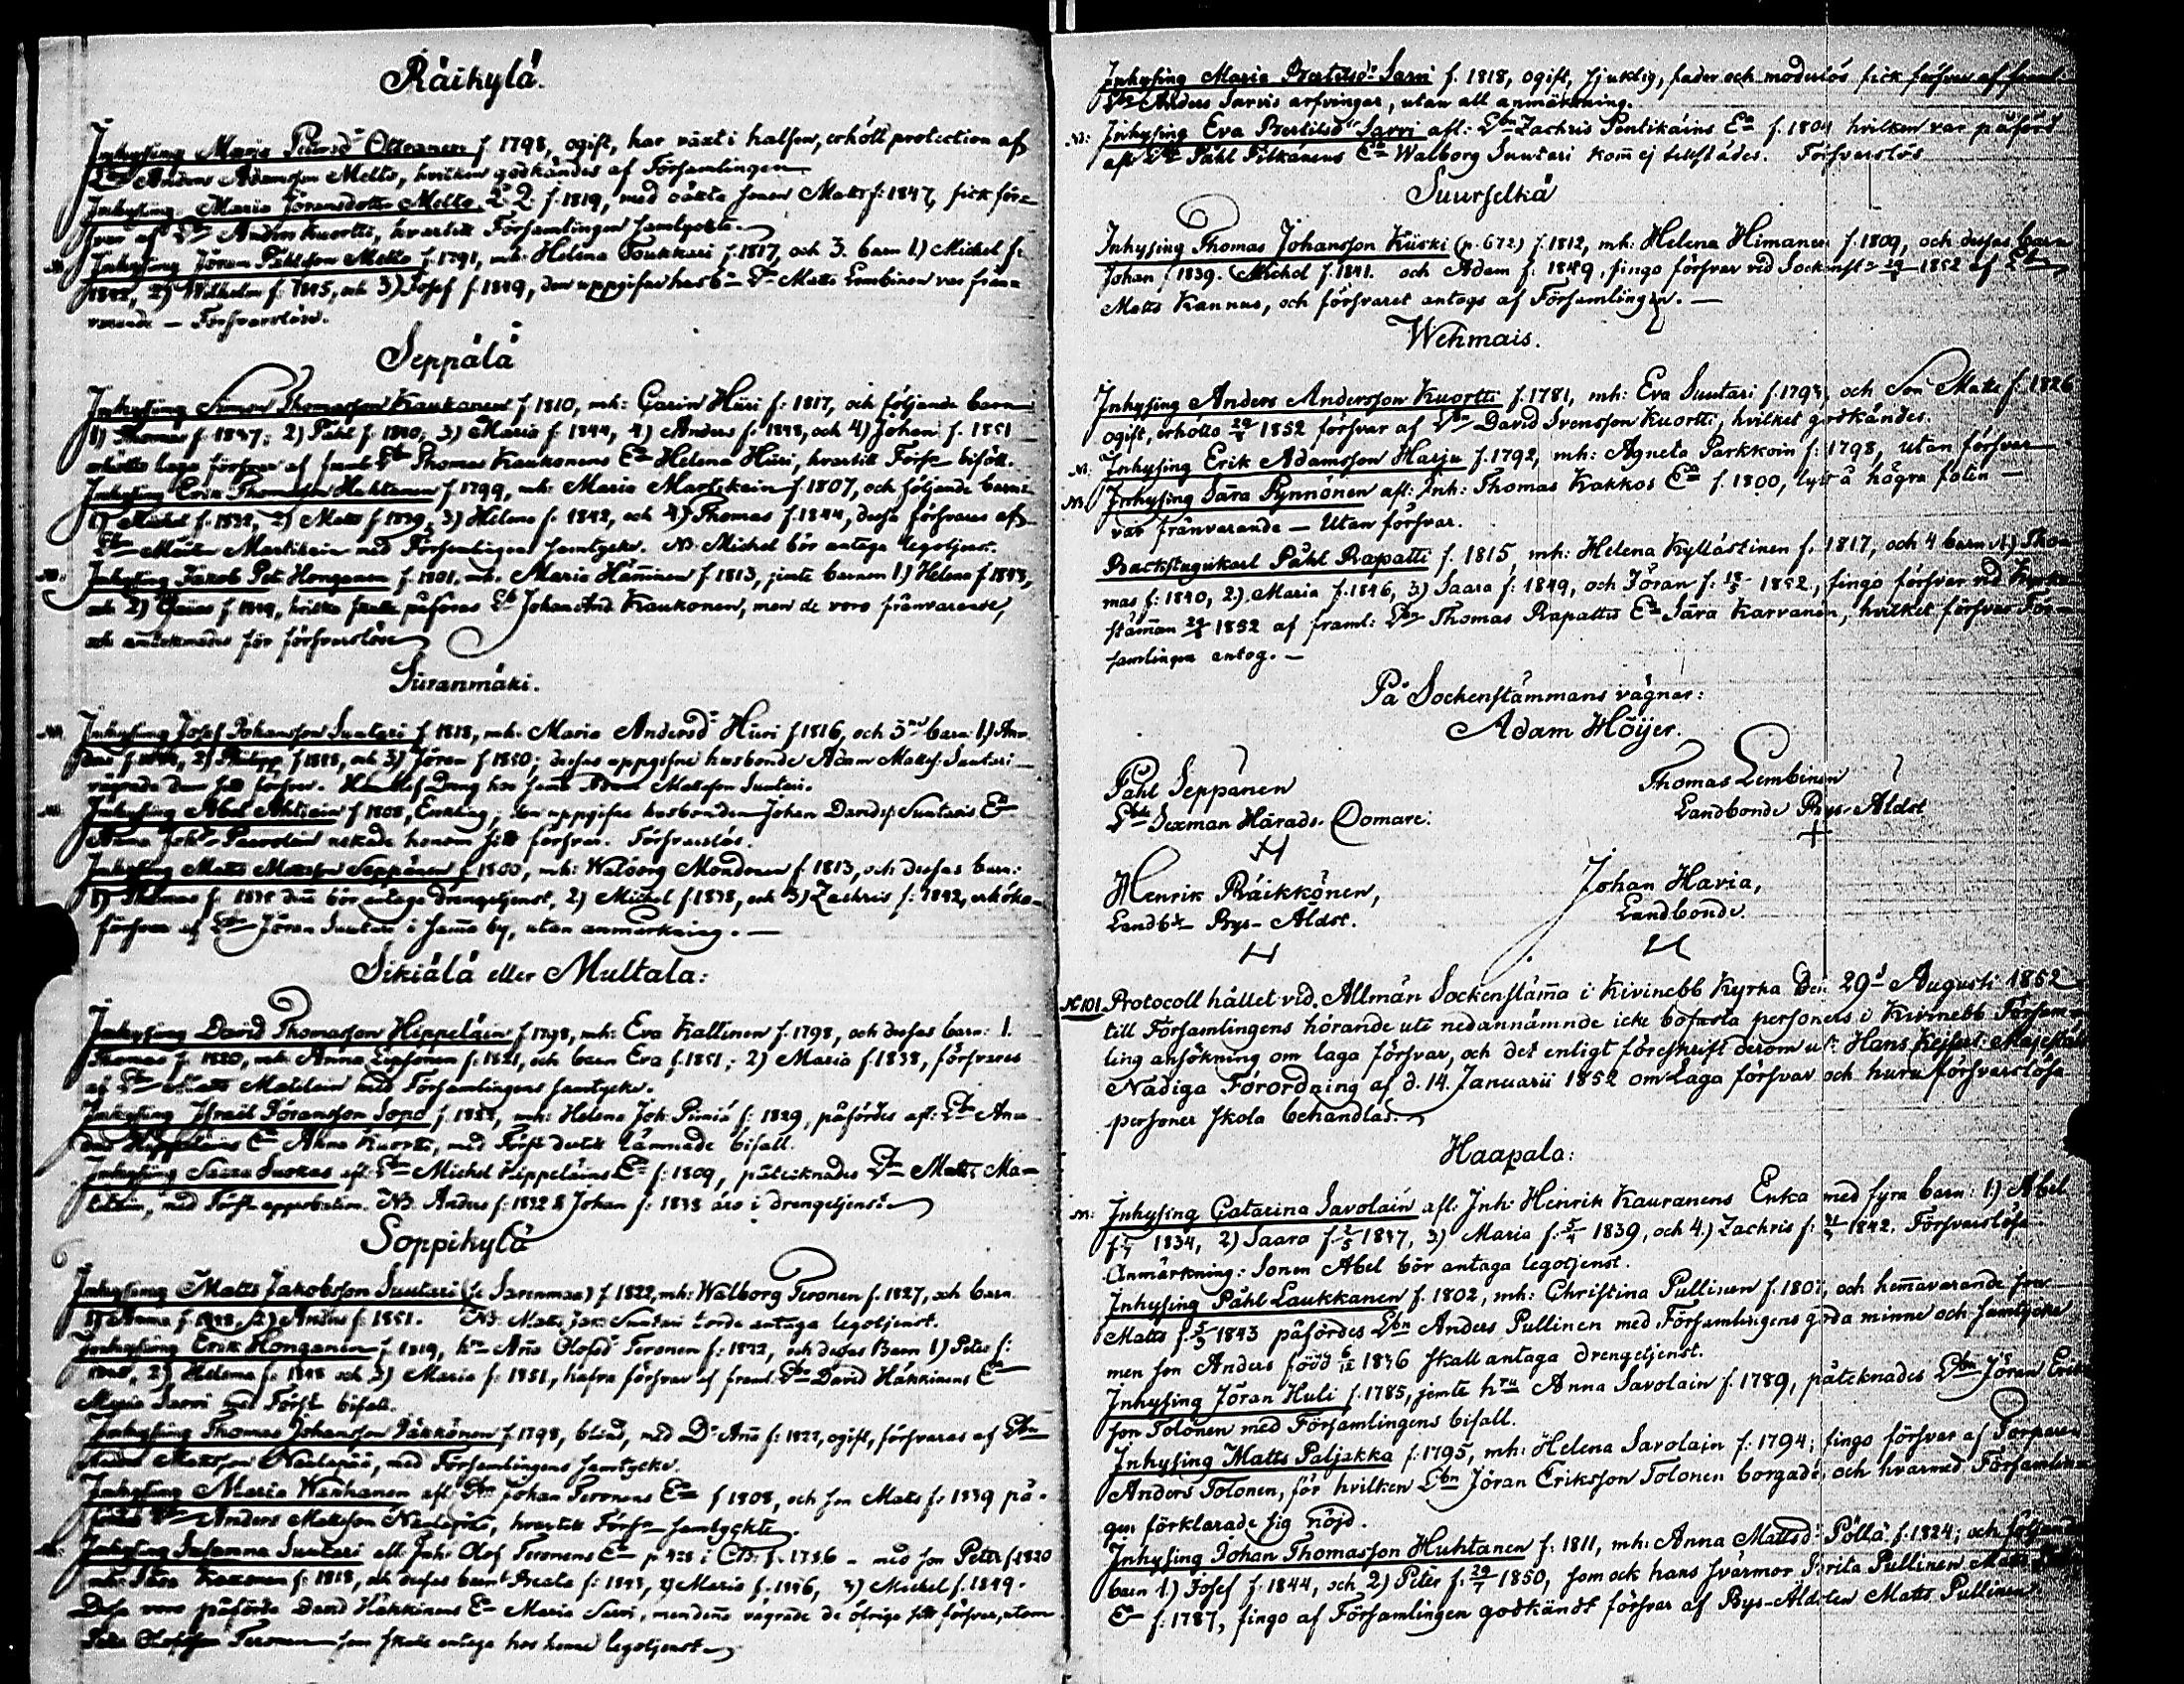 Räikylä.
Inhysing Maria Pettersdr Ollranen f. 1798, ogift, har växt i halsen, erhöll protection af
Lbn Anders Adamsson Mello, hvilken godkändes af Församlingen
Inhysing Maria Jöransdotter Mello f. 1819, med oäkta sonen Matts f: 1847, fick för-
svar af Lbn Anders Kuortti, hvartill Församlingen samtyckte.
Inhysing Jöran Påhlsson Mello f. 1791, mh: Helena Toukkari f. 1817, och 3. barn 1) Michel f:
1842, 2) Wilhelm f: 1845, och 3) Josef f. 1849, den uppgifne husb- Lbn Matts Lembinen var från-
varande — Försvarslöse.
Seppälä
Inhysing Simon Thomasson Kaukonen f. 1810, mh: Carin Hüri f: 1817, och följande barn
1) Thomas f. 1837; 2) Påhl f. 1840; 3) Maria f. 1844, 4) Anders f. 1848, och 4) Johan f. 1851
erhöllo laga försvar af framl. Lbn Thomas Kaukonens Ea Helena Hüri, hvartill Förs- biföll.
Inhysing Erik Thomasson Huhtanen f. 1799, mh: Maria Martikain f. 1807, och följande barn:
1) Michel f. 1832, 2) Matts f. 1839, 3) Helena f. 1842, och 4) Thomas f. 1844, dessa försvaras af
Lbn Martikain med Församlingens samtycke. NB. Michel bör antaga legotjenst.
Inhysing Jakob Pet. Honganen f. 1801. mh. Maria Häminen f. 1813, jemte barnen 1) Helena f. 1843,
och 2) f. 1849, hvilka skulle påföras Lb Johan And. Kaukonen, men de voro frånvarande,
och antecknades för försvarslöse
Süranmäki.
Inhysing Josef Johansson Suutari f. 1818, mh. Maria Andersdr Hüri f. 1816, och 3ne barn 1) An-
ders f. 2) Philipp f. 1848, och 3) Jöran f. 1850; dessas uppgifne husbonde Adam Matts: Suutari
vägrade dem sitt försvar. Adam Mattsson Suutari.
Inhysing Abel f. 1808, Enkling, den uppgifne husbonden Johan Davids: Suutaris Ea
Anna nekade honom sitt försvar. Försvarslös.
Inhysing Matts Mattsson Seppänen f. 1800, mh: Walborg Mondonen f. 1813, och dessas barn:
1) Thomas f: 1835 bör antaga drengetjenst, 2) Michel f. 1838, och 3) Zachris f: 1842, erhöllo
försvar af Lbn Jöran Suutari i sama by, utan anmärkning. —
Sikiälä eller Multala:
Inhysing David Thomasson Hippeläin f. 1798, mh: Eva Kallinen f. 1798, och dessas barn: 1.
Thomas f. 1820, mh: Anna f. 1821, och barn Eva f. 1851; 2) Maria f. 1838, försvares
af Lbn Matts med Församlingens samtycke.
Inhysing Israël Jöransson Sopo f. mh: Helena Joh: f: 1829, påfördes afl: Lbn An-
ders Hippeläins Ea Anna Kuortti, med Förs- dertill lämnade bifall.
Inhysing Saara Suokas afl: Lbn Michel Hippeläins Ea f: 1809, påtecknades Lbn Matts Ma-
med Förs- approbation. NB. Anders f: 1832 & Johan f: 1838 äro i drengetjenst
Soppikylä
Inhysing Matts Jakobsson Suutari f. 1822, mh: Walborg Teronen f. 1827, och barn
1) Anna f. 1848, 2) Anders f: 1851. NB. Matts Jak: Suutari torde antaga legotjenst.
Inhysing Erik Honganen f. 1819, hru Aña Olofsdr Teronen f: 1822, och dessas Barn 1) Peter f:
2) Helena f: 1848 och 3) Maria f: 1851, hafva försvar af framl: Lbn David Häkkinens Ea
Maria Sarvi med Förs- bifall.
Inhysing Thomas Johansson f. 1798, blind, med Dr Aña f: 1822, ogift, försvaras af Lbn
Anders Mattsson med Församlingens samtycke.
Inhysing Maria Wanhanen afl: Lbn Johan Teronens Ea f. 1808, och son Matts f: 1839 på-
fördes Lbn Anders Mattsson hvartill Förs- samtyckte.
Inhysing Susanna Suutari afl: Inh: Olof Teronens Ea f. 1786 – med son Peter f. 1820
mh: f: 1818, och dessas barn 1 Beata f: 1843, 2) Maria f: 1846, 3) Michel f. 1849.
Dessa voro påförda David Häkkinens Ea Maria Sarvi, men denna vägrade de öfriga sitt försvar, utom
Olofsson Teronen som skulle antaga hos henne legotjenst
Inhysing Maria Bertilsdr Sarvi f. 1818, ogift, sjuklig, fader och moderlös fick försvar af framl:
Lbn Anders Sarvis arfvingar, utan all anmärkning.
N: Inhysing Eva Bertilsdr Sarvi afl: Lbn Zachris Pentikäins Ea f. 1804 hvilken var påförd
afl: Lbn Påhl Pilkänens Ea Walborg Suutari kom ej tillstädes. Försvarslös
Suurselkä
Inhysing Thomas Johansson Küski (p. 672) f. 1812, mh: Helena Himanen f. 1809, och dessas barn
Johan f. 1839. Michel f. 1841. och Adam f: 1849, fingo försvar vid Sockenst- 29/8 1852 af Lbn
Matts Kannus, och försvaret antogs af Församlingen. —
Wehmais.
Inhysing Anders Andersson Kuortti f. 1781, mh: Eva Suutari f. 1793, och Son Matts f. 1826
ogift, erhöllo 29/8 1852 försvar af Lbn David Svensson Kuortti, hvilket godkändes.
N: Inhysing Erik Adamsson Harju f. 1792, mh: Agneta Parkkoin f: 1798, utan försvar
N: Inhysing Sara Pynnönen afl: Inh: Thomas Kakkos Ea f. 1800, lytt å högra foten —
var frånvarande — Utan försvar.
Backstugukarl Påhl Rapatti f. 1815, mh: Helena Kyllästinen f. 1817, och 4 barn 1) Tho-
mas f: 1840, 2) Maria f. 1846, 3) Saara f: 1849, och Jöran f: 1852, fingo försvar vid Kyrko-
stämman 29/8 1852 af framl: Lbn Thomas Rapattis Ea Sara Karvanen, hvilket försvar För-
samlingen antog. —
På Sockenstämmans vägnar:
Adam Höijer.
Påhl Seppänen
Lbde Sexman Härads-Domare:
Thomas Lembinen
Landbonde Bys-Äldst
Henrik Räikkönen,
Landb- Bys-Äldst.
Johan Havia,
Landbonde.
N 101. Protocoll hållet vid Allmän Sockenstäma i Kivinebb Kyrka den 29d Augusti 1852
till Församlingens hörande uti nedannämnde icke bofasta personers i Kivinebb Försam-
ling ansökning om laga försvar, och det enligt föreskrift derom uti Hans Kejserl: Majestäts
Nådiga Förordning af d. 14. Januarii 1852 om Laga försvar och huru försvarslösa
personer skola behandlas.
Haapala:
N: Inhysing Catarina Savolain afl: Inh: Henrik Kauranens Enka med fyra barn: 1) Abel
f. 1834, 2) Saara f. 2/5 1837, 3) Maria f. 5/4 1839, och 4.) Zachris f: 1842. Försvarslösa
Anmärkning: Sonen Abel bör antaga legotjenst.
Inhysing Påhl Laukkanen f. 1802, mh: Christina Pullinen f. 1807, och hemavarande son
Matts f. 1843 påfördes Lbn Anders Pullinen med Församlingens goda minne och samtycke
men son Anders född 6/12 1836 skall antaga drengetjenst.
Inhysing Jöran Huli f. 1785, jemte hru Anna Savolain f. 1789, påtecknades Lbn Jöran Eriks-
son Tolonen med Församlingens bifall.
Inhysing Matts Paljakka f. 1795, mh: Helena Savolain f: 1794; fingo försvar af Torparen
Anders Tolonen, för hvilken Lbn Jöran Eriksson Tolonen borgade, och hvarmed Församlin-
gen förklarade sig nöjd.
Inhysing Johan Thomasson Huhtanen f: 1811, mh: Anna Mattsdr Pöllä f. 1824; och följande
barn 1) Josef f. 1844, och 2) Peter f. 29/7 1850, som ock hans svärmor Brita Pullinen
Ea f: 1787, fingo af Församlingen godkändt försvar af Bys-Äldsten Matts Pullinen